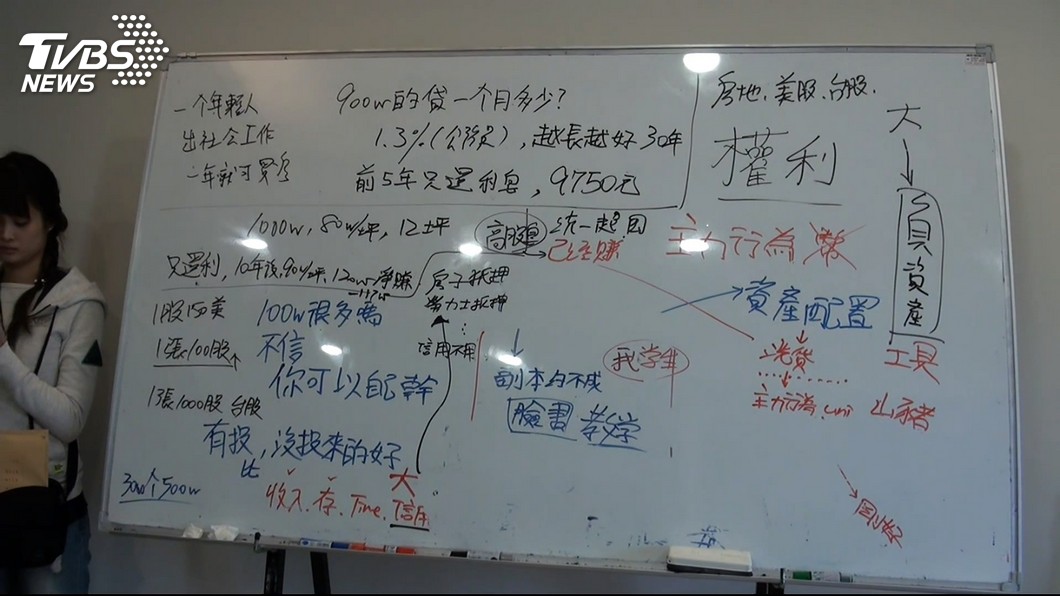 TVBS
NEWS
一个年輕人
出社会工作
一年就可買
900w的貸一个月多少?
1.3%(公務員), 越長越好 30年
前5年只還利息, 9750元
房地、美股、台股、
權利
大
負資產
工具
1000w, 80w/坪, 12坪
高股
統一起
已經賺
主力行為
只還利, 10年後, 90w/坪, 120w淨賺
房子抵押
勞力士抵押
信用不用
1股150美
1張100股
1張1000股 台股
100w很多嗎
不信
你可以自己幹
有投, 沒投來的好
比
300个500w
收入. 存. Time. 信用
大
副本的不成
臉書 教学
我学生
資產配置
主力行為. uni
山豬